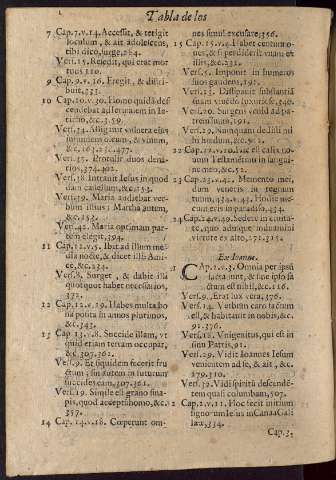 Tabla de los
7 Cap. 7. v. 14. Accessit, & tetigit
loculum, & ait adolescens,
tibi dico, surge.
Vers. 15. Resedit, qui erat mor
tuus 110.
9 Cap. 9. v. 16. Fregit, & distri
buit, 333.
10 Cap. 10. v. 30. Homo quidā des
cendebat ab Ierusalem in Ie-
richo, &c. 350.
Vers. 34. Alligauit vulnera eius
fundens oleum, & vinum,
&c. 477.
Vers. 35. Protulit duos dena-
rios, 374. 402.
Vers. 38. Intrauit Iesus in quod
dam castellum, &c. 353.
Vers. 39. Maria audiebat ver-
bum illius: Martha autem,
&c.
Vers. 42. Maria optimam par-
tem elegit, 394.
11 Cap. 12. v. 5. Ibit ad illum me-
dia nocte, & dicet illi Ami-
ce, &c. 234.
Vers. 8. Surget, & dabit illi
quotquot habet necessarios,
372.
12 Cap. 12. v. 19. Habes multa bo
na posita in annos plurimos,
&c. 343.
13 Cap. 13. v. 8. Succide illam, vt
quid etiam terram occupat,
&c. 307. 362.
Vers. 9. Et siquidem fecerit fru
ctum; sin autem in futurum
succides eam, 307. 361.
Vers. 19. Simile est grano sina-
pis, quod acceptū homo, &c.
357.
14 Cap. 14. v. 18. Cœperunt om-
nes simul excusare, 356.
15 Cap. 15. v. 4. Habet centum o-
ues, & si perdiderit vnam ex
illis, &c. 231.
Vers. 5. Imponit in humeros
suos gaudens, 191.
Vers. 13. Dissipauit substantiā
suam viuendo luxuriosè,
Vers. 20. Surgens venit ad pa-
trem suum, 191.
Vers. 29. Nunquam dedisti mi
hi hædum, &c.
22 Cap. 22. v. 20. Hic est calix no-
uum Testamentum in sangui
ne meo, &c. 52.
23 Cap. 23. v. 42. Memento mei,
dum veneris in regnum
tuum, 434. v. 43. Hodie me-
cum eris in paradiso, 434.
24 Cap. 24. v. 49. Sedete in ciuita-
te, quo adusque induamini
virtute ex alto, 171. 315.
Ex Ioanne.
Cap. 1. v. 3. Omnia per ipsū
facta sunt, & sine ipso fa
ctum est nihil, &c. 116.
Vers. 9. Erat lux vera, 376.
Vers. 14. Verbum caro factum
est, & habitauit in nobis, &c.
91. 376.
Vers. 18. Vnigenitus, qui est in
sinu Patris, 91.
Vers. 29. Vidit Ioannes Iesum
venientem ad se, & ait, &c.
179. 310.
Vers. 32. Vidi spiritū descendē-
tem quasi columbam, 507.
2 Cap. 2. v. 11. Hoc fecit initium
signorum Iesus in Cana Gali-
lææ, 334.
Cap. 3.